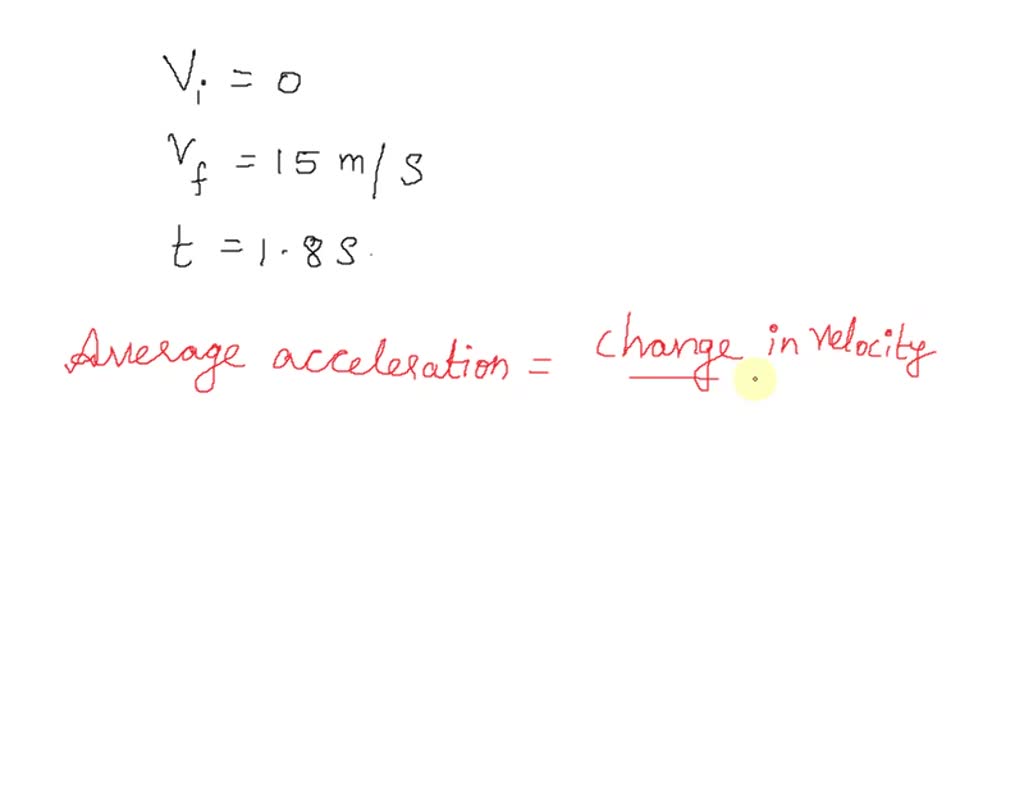 Vi = 0
Vf = 15 m/s
t = 1.8 s.
Average acceleration = change in velocity